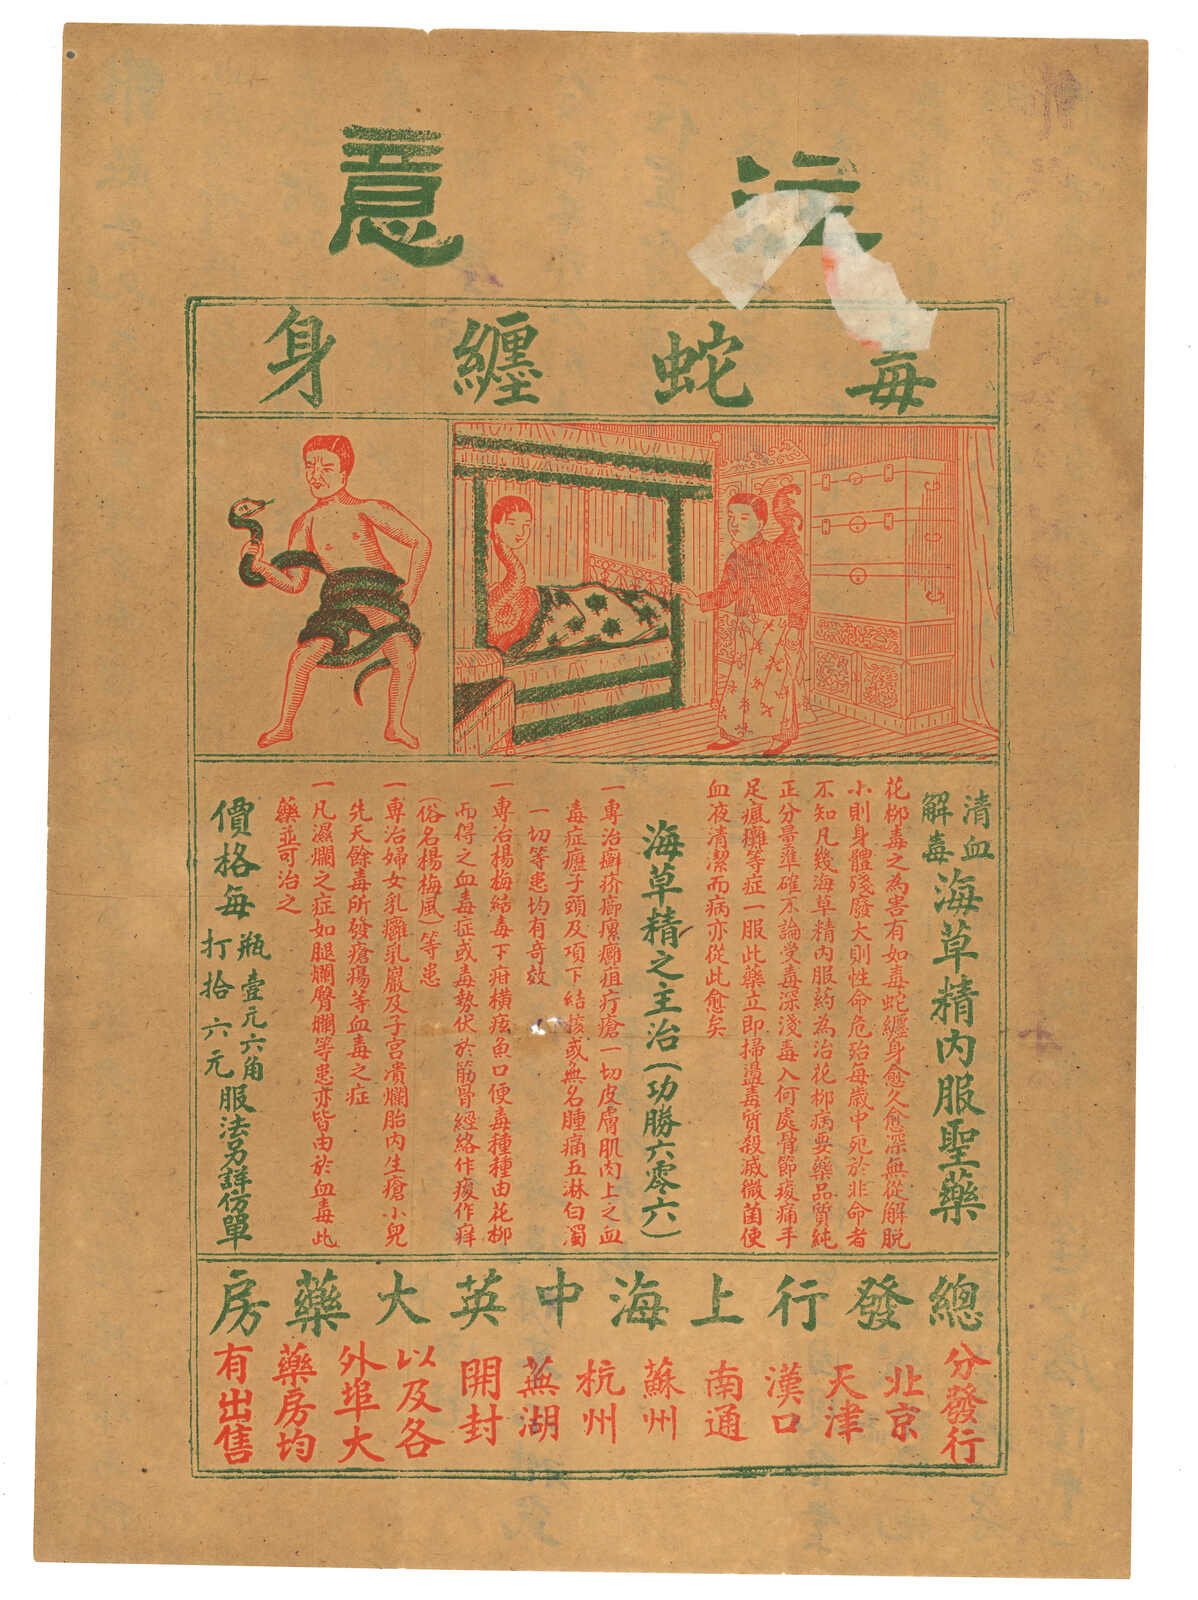 注意
毒蛇纏身
清血解毒海草精內服聖藥
花柳毒之為害有如毒蛇纏身愈久愈深無從解脫
小則身體殘廢大則性命危殆每歲中死於非命者
不知凡幾海草精內服葯為治花柳病要藥品質純
正分量準確不論受毒深淺毒入何處骨節痠痛手
足瘋癱等症一服此藥立即掃盪毒質殺滅微菌使
血液清潔而病亦從此愈矣
海草精之主治(功勝六零六)
一專治癬疥瘰癧疽疔瘡一切皮膚肌肉上之血
毒症癧子頭及項下結核或無名腫痛五淋白濁
一切等患均有奇效
一專治楊梅結毒下疳橫痃魚口便毒種種由花柳
而得之血毒症或毒勢伏於筋骨經絡作痠作痒
(俗名楊梅風)等患
一專治婦女乳癰乳巖及子宮潰爛胎內生瘡小兒
先天餘毒所發瘡瘍等血毒之症
一凡濕爛之症如腿爛臀爛等患亦皆由於血毒此
藥並可治之
價格每瓶壹元六角
打拾六元
服法另詳仿單
總發行上海中英大藥房
分發行
北京
天津
漢口
南通
蘇州
杭州
蕪湖
開封
以及各
外埠大
藥房均
有出售